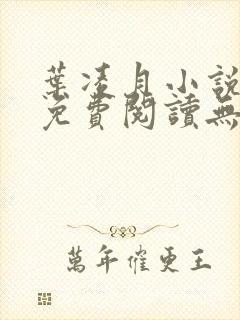 葉凌月小說
免費閱讀無
萬年催更王